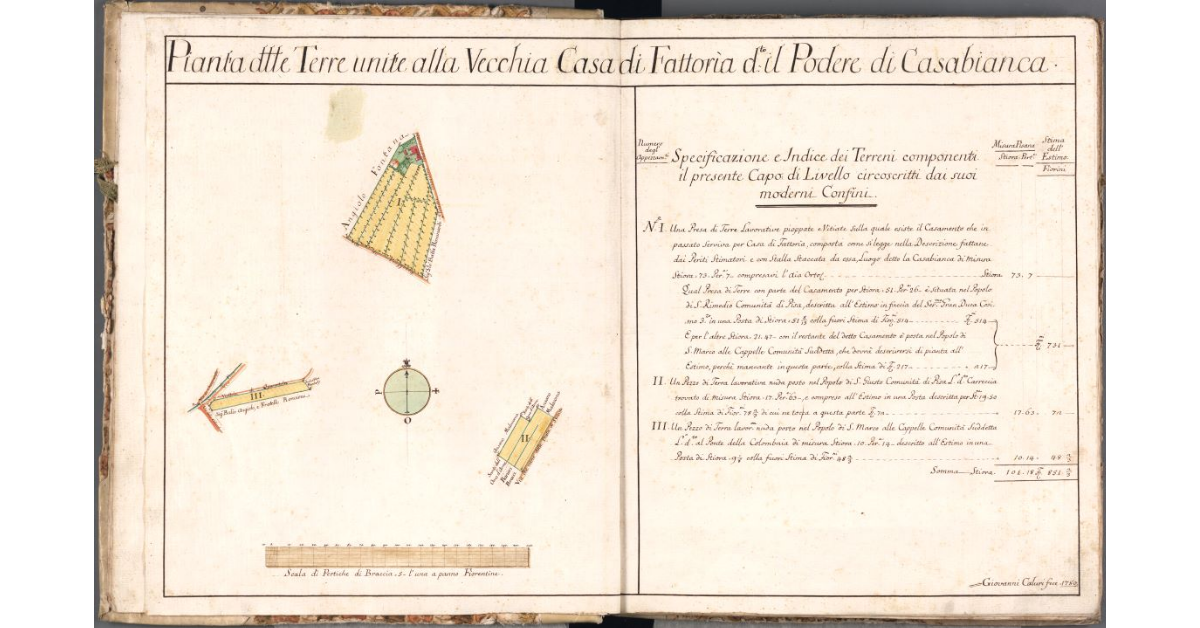 Pianta dtte Terre unite alla Vecchia Casa di Fattoria d.to il Podere di Casabianca.
Angiolo Fontana
I.
III
II
P
O
Scala di Pertiche di Braccia 5 l'una a panno Fiorentino
Numero
degl'
Specificazione e Indice dei Terreni componenti
il presente Capo di Livello circoscritti dai suoi
moderni Confini.
Misura Pisana
Stiora Per.e
Stima
dell'
Estimo.
Fiorini
N.o I. Una Presa di Terre Lavorative pioppate e Vitiate sulla quale esiste il Casamento che in
passato serviva per Casa di Fattoria, composta come si legge nella Descrizione fattane
dai Periti Stimatori e con Stalla Staccata da essa, Luogo detto la Casabianca di misura
Stiora 73. Per.e 7. compresavi l'Aia Orto Stiora 73. 7
Qual Presa di Terre con parte del Casamento per Stiora 51. Per.e 26. è situata nel Popolo
di S. Rimedio Comunità di Pisa, descritta all'Estimo in faccia del
in una Posta di Stiora 51 colla fuori Stima di 514 514
E per l'altre Stiora 21. 47 con il restante del detto Casamento è posta nel Popolo di
S. Marco alle Cappelle Comunità Suddetta, che dovrà descriversi di pianta all'
Estimo, perchè mancante in questa parte, colla Stima di 217 217
731
II. Un Pezzo di Terra lavorativa nuda posto nel Popolo di S. Giusto Comunità di Pisa L.o d.o Carrescia
trovato di misura Stiora 17. Per.e 63. e compreso all'Estimo in una Posta descritta per St. 19.50
colla Stima di Fior. 78 di cui ne tocca a questa parte 72 17. 63 72
III. Un Pezzo di Terra lavor.a nuda posto nel Popolo di S. Marco alle Cappelle Comunità Suddetta
L.o d.o al Ponte della Colombaia di misura Stiora 10. Per.e 14 descritto all'Estimo in una
Posta di Stiora 9½ colla fuori Stima di Fior. 48 10. 14 48
Somma Stiora
Giovanni Caluri fece 1782